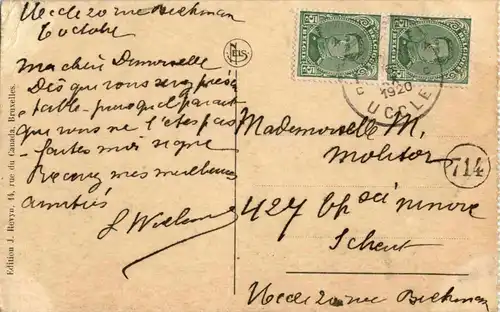 Uccle 20 rue Beekman
6 octobre
Ma chère Demoiselle
Dès que vous serez présen
table - puisqu'il paraît
que vous ne l'êtes pas
faites moi signe
Recevez mes meilleures
amitiés
NELS
Edition J. Revyn, 44, rue du Canada, Bruxelles.
BELGIQUE
1920
UCCLE
Mademoiselle M.
Molitor
714
427
Scheut
Uccle 20 rue Beekman